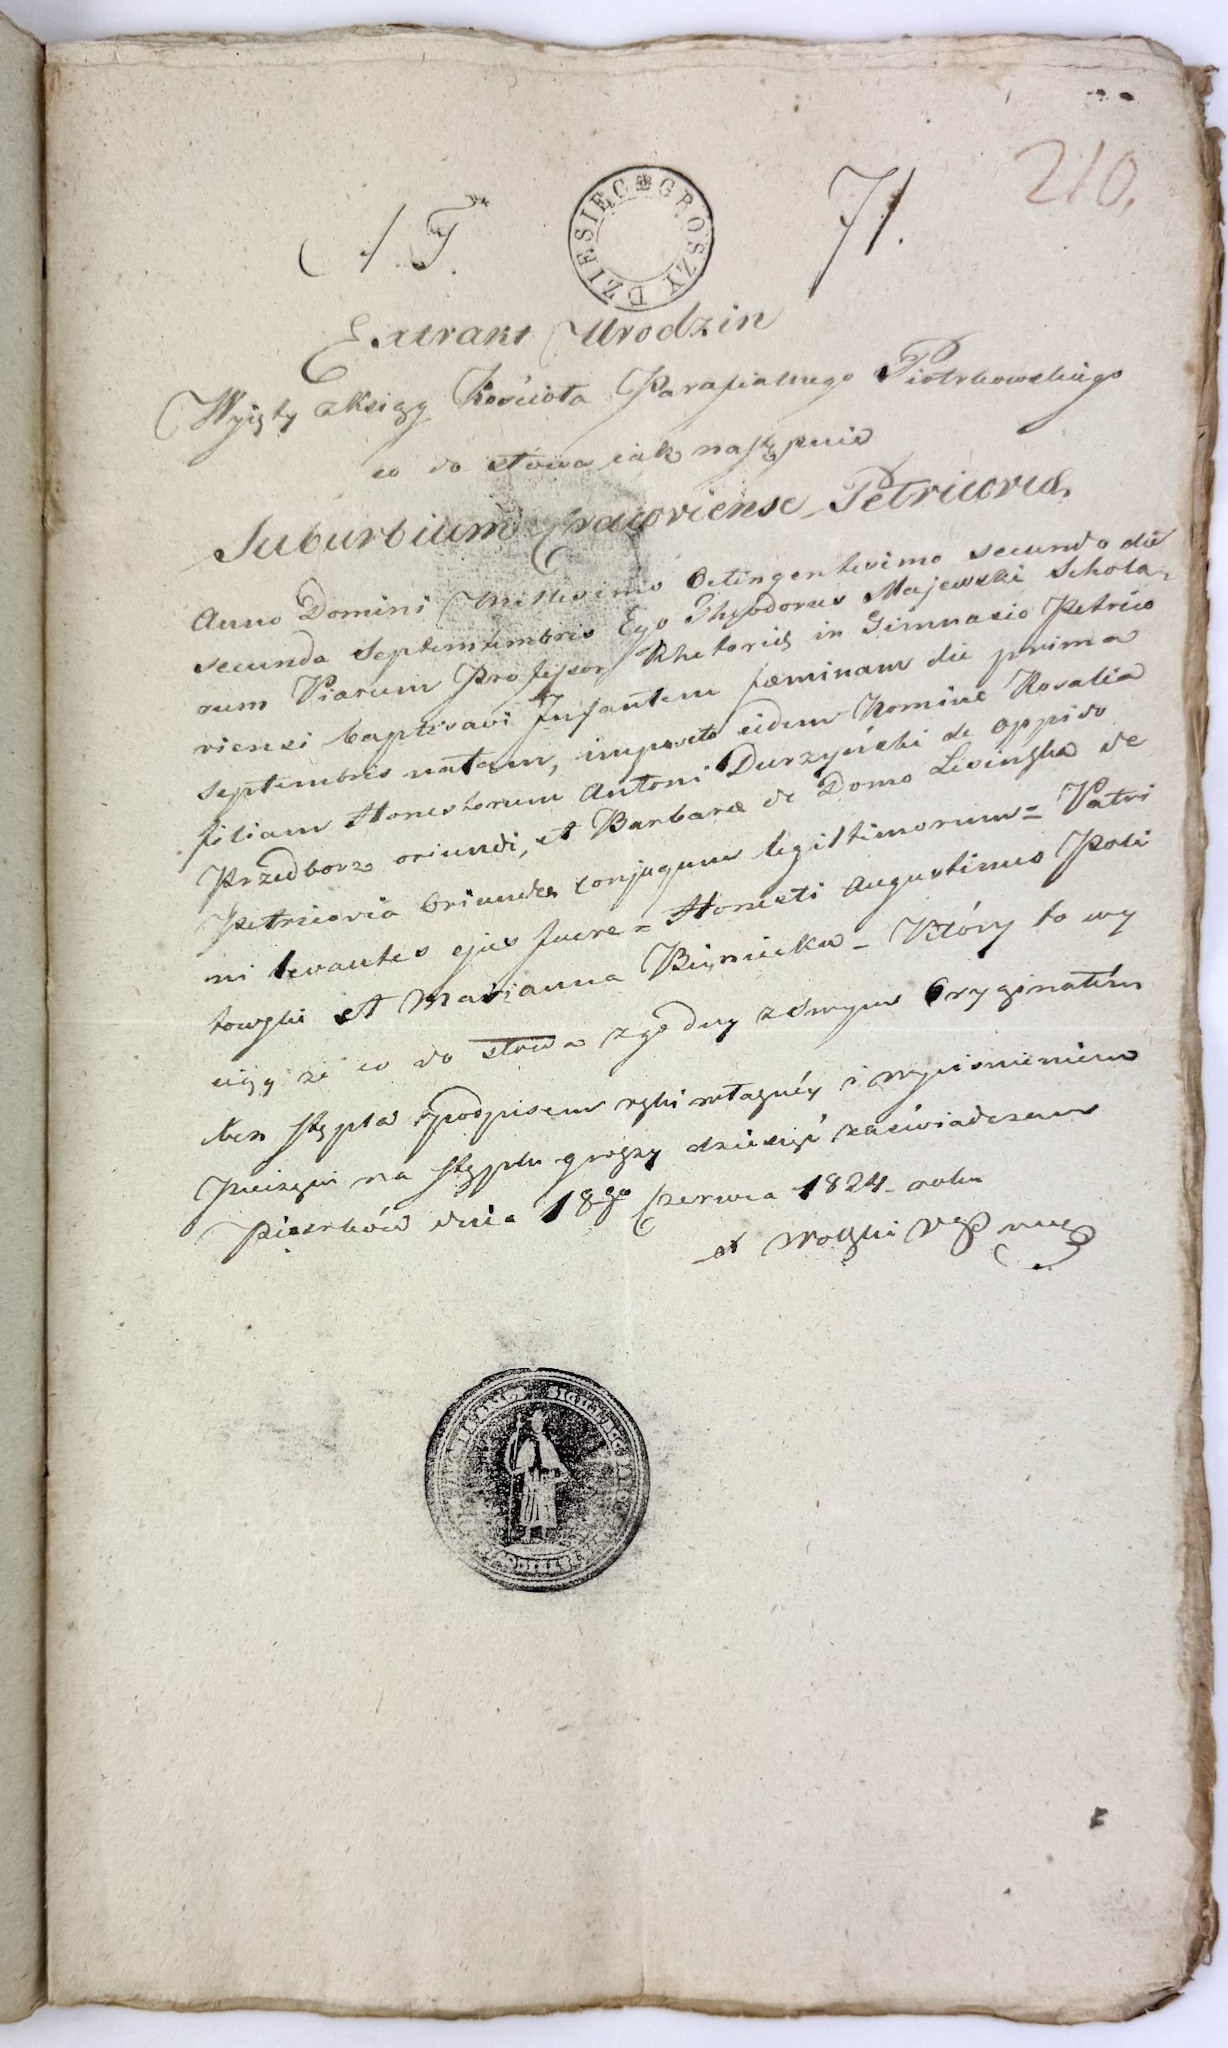 210.
71.
DZIESIĘC GROSZY
Extrakt Urodzin
Wyięty z Xsięgy Kościoła Parafialnego Piotrkowskiego
co do słowa iak następnie
Suburbium Cracoviense Petricoviæ
Anno Domini Millesimo Octingentesimo secundo die
secunda Septemembris Ego Theodorus Majewski Schola-
rum Piarum Professor Rhetorices in Gimnasio Petrico
viensi baptisavi Infantem fæminam die prima
septembris natam, imposito eidem Nomine Rosalia
filiam Honestorum Antoni Durzyński de oppido
Przedborz oriundi, et Barbaræ de Domo Lesińska de
Petricovia Oriundæ conjugum legittimorum = Patri
ni levantes ejus fuere = Honesti Augustinus Poli
towski et Marianna Biernicka - Który to wy
ciąg że co do słowa zgodny z swym Oryginałem
bez stępla podpisem ręki własnéy i wyciśnieniem
Pieczęci na stęplu groszy dziesięć zaświadczam
Piotrków dnia 18go Czerwca 1824 roku